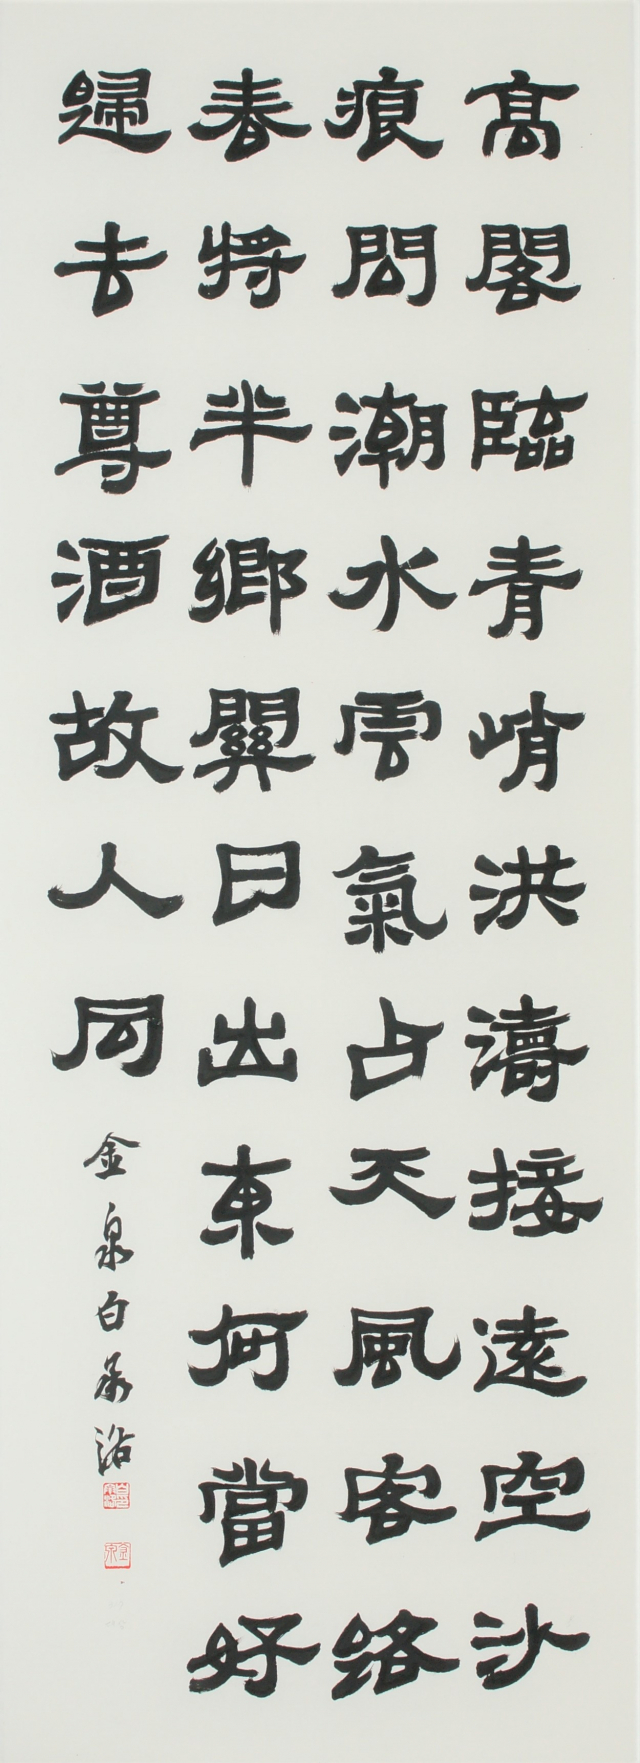 高閣臨青峭洪濤接遠空沙
痕問潮水雲氣占天風客絡
春將半鄉關日出東何當好
歸去尊酒故人同
金泉白